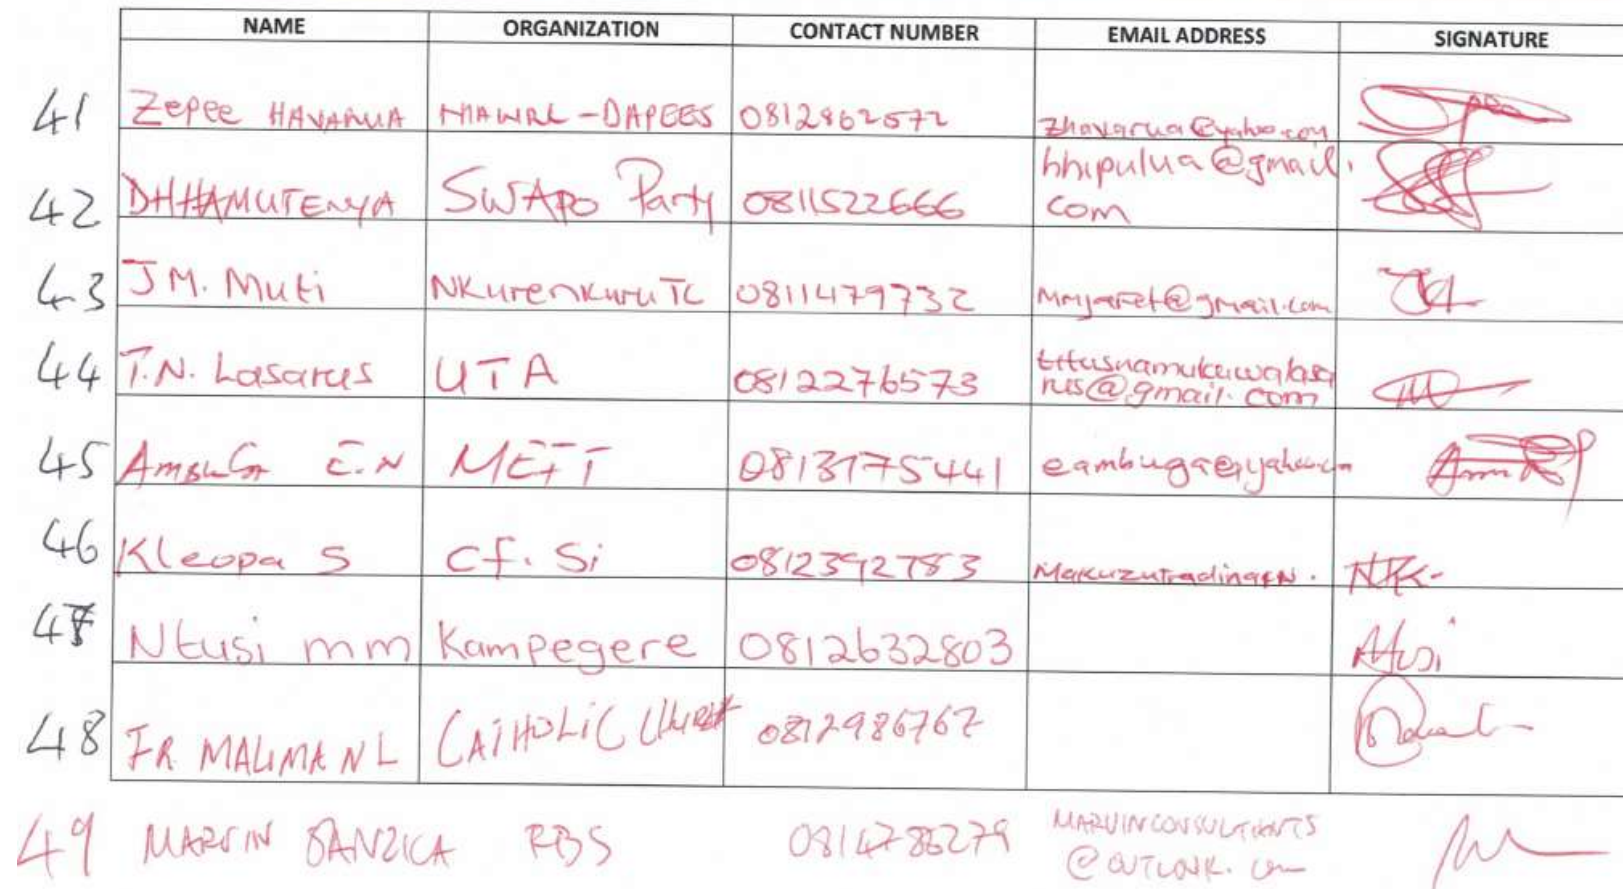 NAME ORGANIZATION CONTACT NUMBER EMAIL ADDRESS SIGNATURE
41 Zepee HAVARUA MAWRL-DAPEES 0812962572 zhavarua@yahoo.com
42 DHHAMUTENYA SWAPO Party 0811522666 hhipulua@gmail.
com
43 JM. Muti Nkurenkuru TC 0811479732 mmjaret@gmail.com
44 T.N. Lasarus UTA 0812276573 titusnamukuwalasa
rus@gmail.com
45 E.N METT 0813175441 eambuga@yahoo.com
46 Kleopa S Cf. Si 0812392783
47 Ntusi mm Kampegere 0812632803
48 FR. MALIMA NL CATHOLIC Church 0812986762
49 MARVIN RBS 0814786279 MARVINCONSULTANTS
@OUTLOOK.com